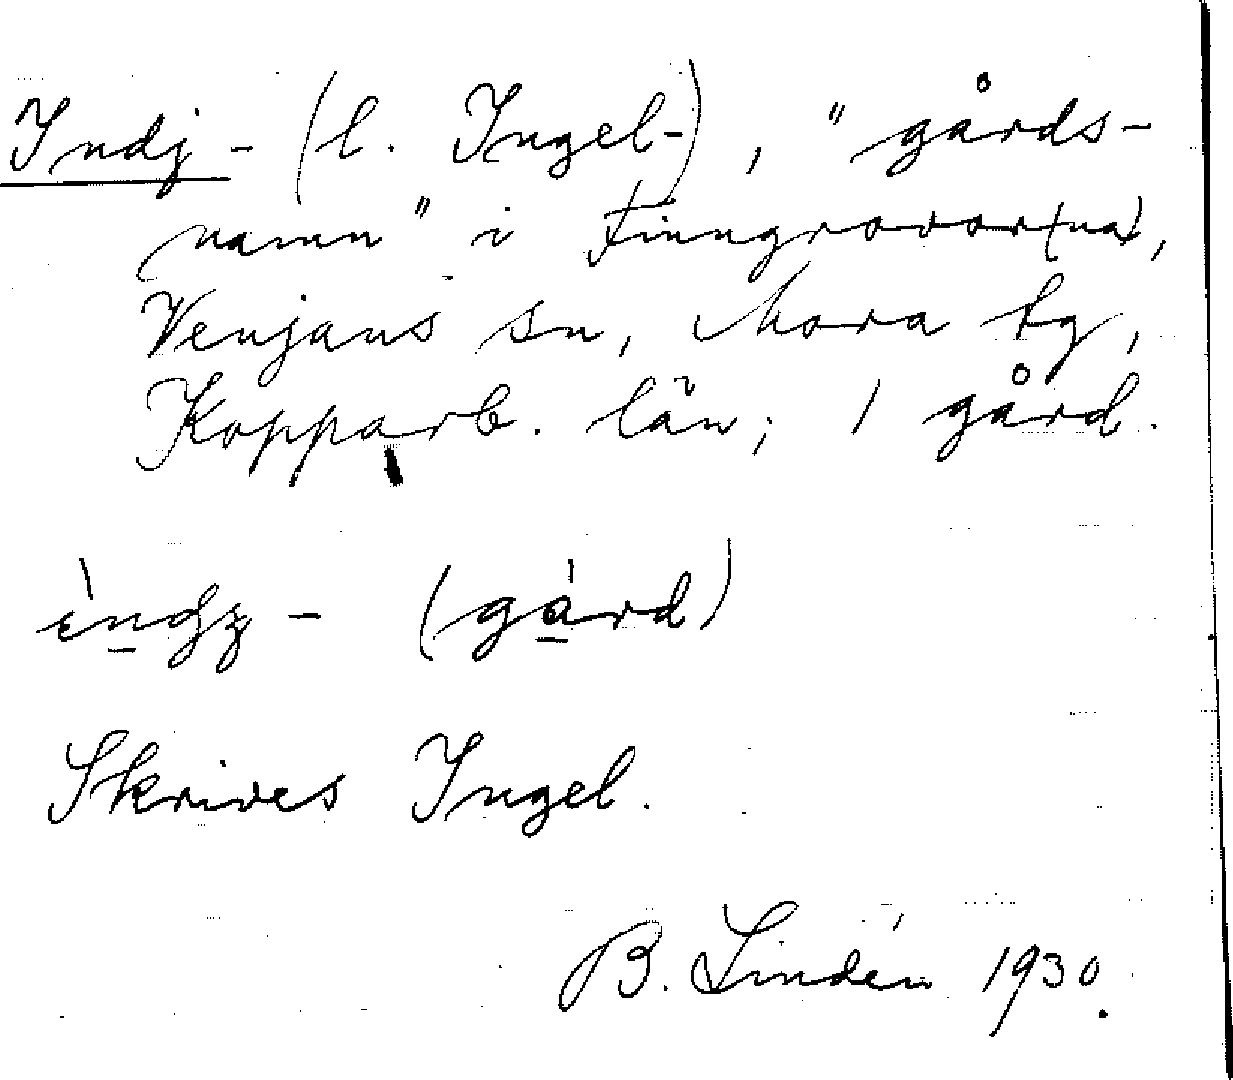 Indj- (l. Ingel-), "gårds-
namn" i Finngrovor(na),
Venjans sn, Mora tg,
Kopparb. län; 1 gård.
(gård)
Skrives Ingel.
B. Lindén 1930.